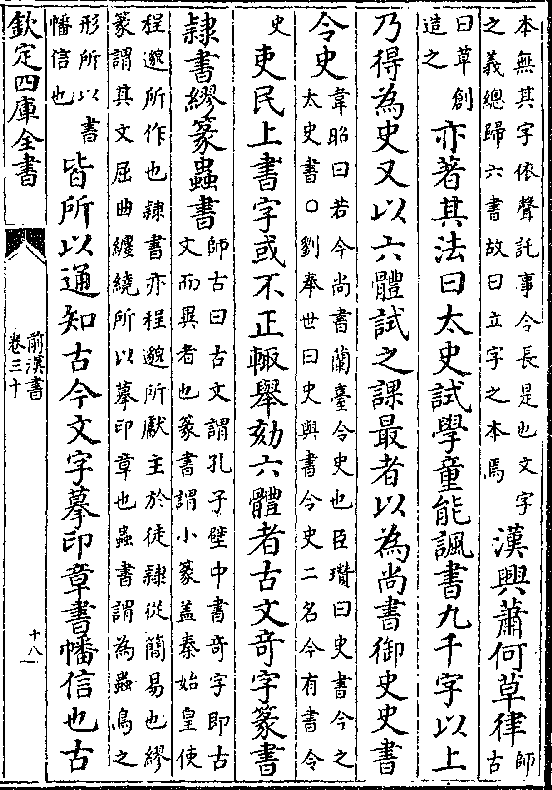 本無其字依聲託事令長是也文字
之義總歸六書故曰立字之本焉
漢興蕭何草律
師
古
曰草創
造之
亦著其法曰太史試學童能諷書九千字以上
乃得為史又以六體試之課最者以為尚書御史史書
令史
韋昭曰若今尚書蘭臺令史也臣瓚曰史書今之
太史書○劉奉世曰史與書令史二名今有書令
史
吏民上書字或不正輙舉劾六體者古文竒字篆書
隸書繆篆蟲書
師古曰古文謂孔子壁中書竒字即古
文而異者也篆書謂小篆蓋秦始皇使
程邈所作也隸書亦程邈所獻主於徒隸從簡易也繆
篆謂其文屈曲纏繞所以摹印章也蟲書謂為蟲鳥之
形所以書
幡信也
皆所以通知古今文字摹印章書幡信也古
欽定四庫全書
前漢書
卷三十
十八